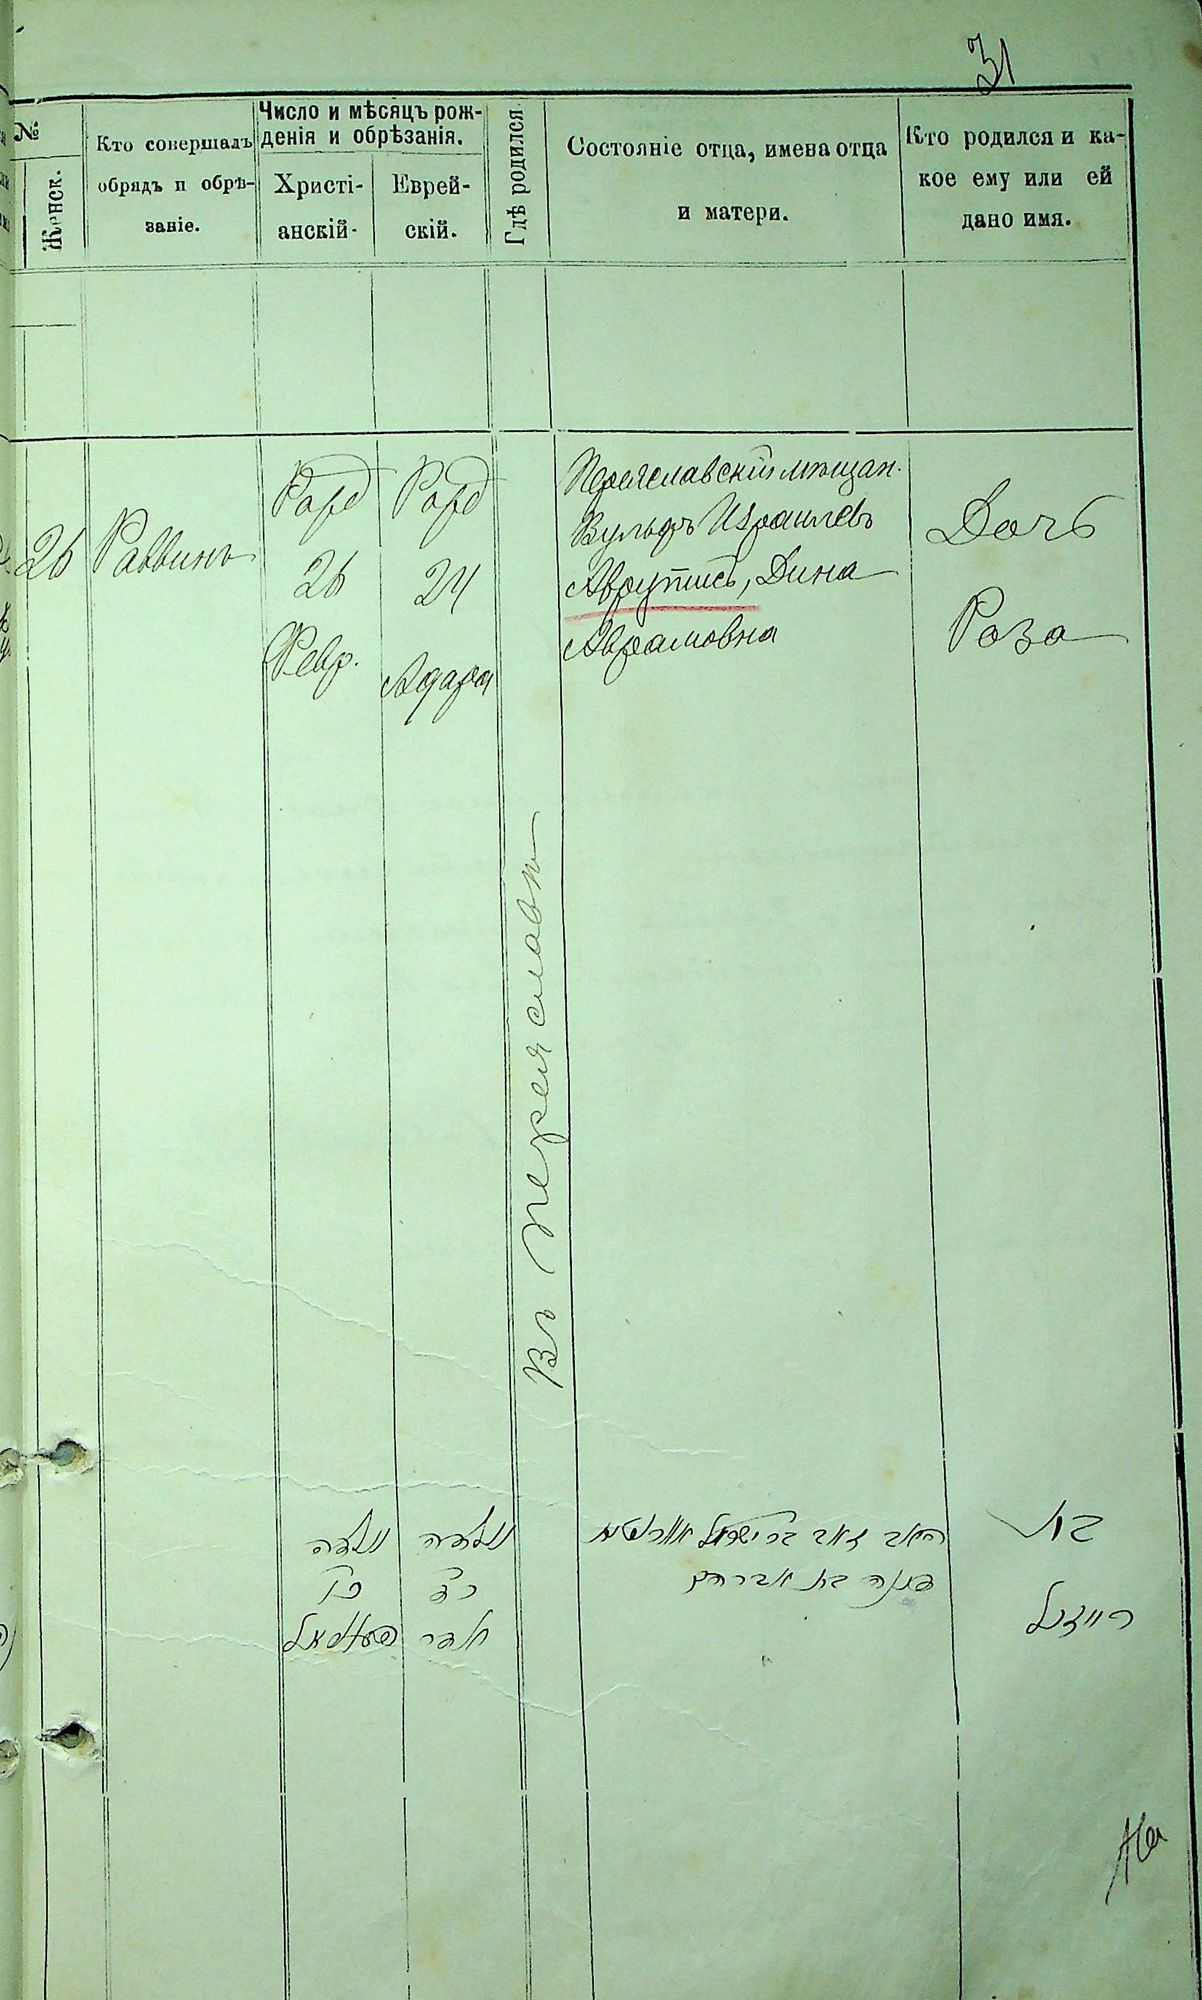 31
№
Женск.
Кто совершалъ
обрядъ и обрѣ-
заніе.
Число и мѣсяцъ рож-
денія и обрѣзанія.
Христі-
анскій.
Еврей-
скій.
Гдѣ родился
Состояніе отца, имена отца
и матери.
Кто родился и ка-
кое ему или ей
дано имя.
26
Раввинъ
26
Февр.
24
Адара
Въ Переяславѣ
Переяславскій мѣщан.
Вульфъ Израилевъ
Аврутисъ, Дина
Аврамовна
Дочь
Роза
נולדה
כו
נולדה
כד
אדר
האב זאב בר ישראל
בת אברהם
בת
רייזל